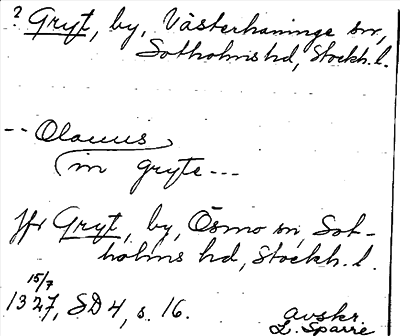 ? Gryt, by, Västerhaninge sn,
Sotholms hd, Stockh. l.
-- Olauus
in gryte ---
Jfr Gryt, by, Ösmo sn, Sot-
holms hd, Stockh. l.
15/7
1327, SD 4, s. 16.
avskr.
L. Sparre